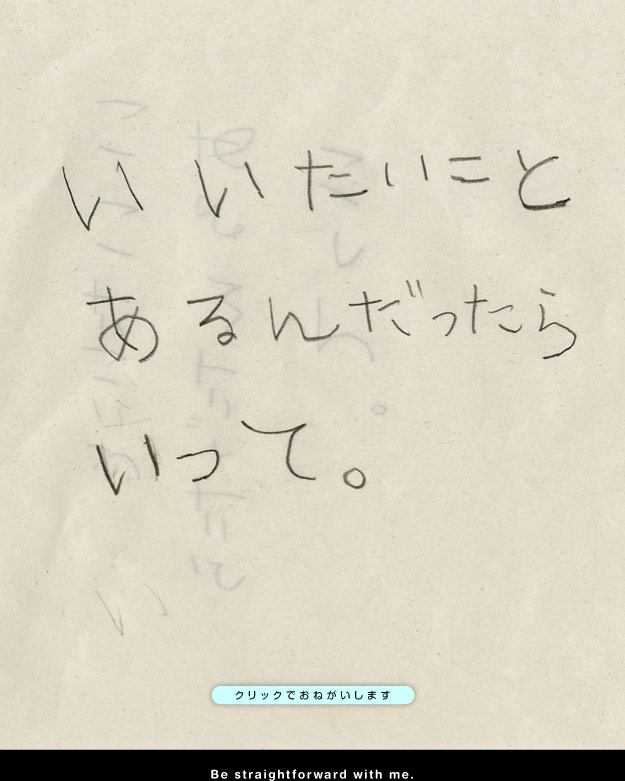 いいたいこと
あるんだったら
いって。
い
クリックでおねがいします
Be straightforward with me.